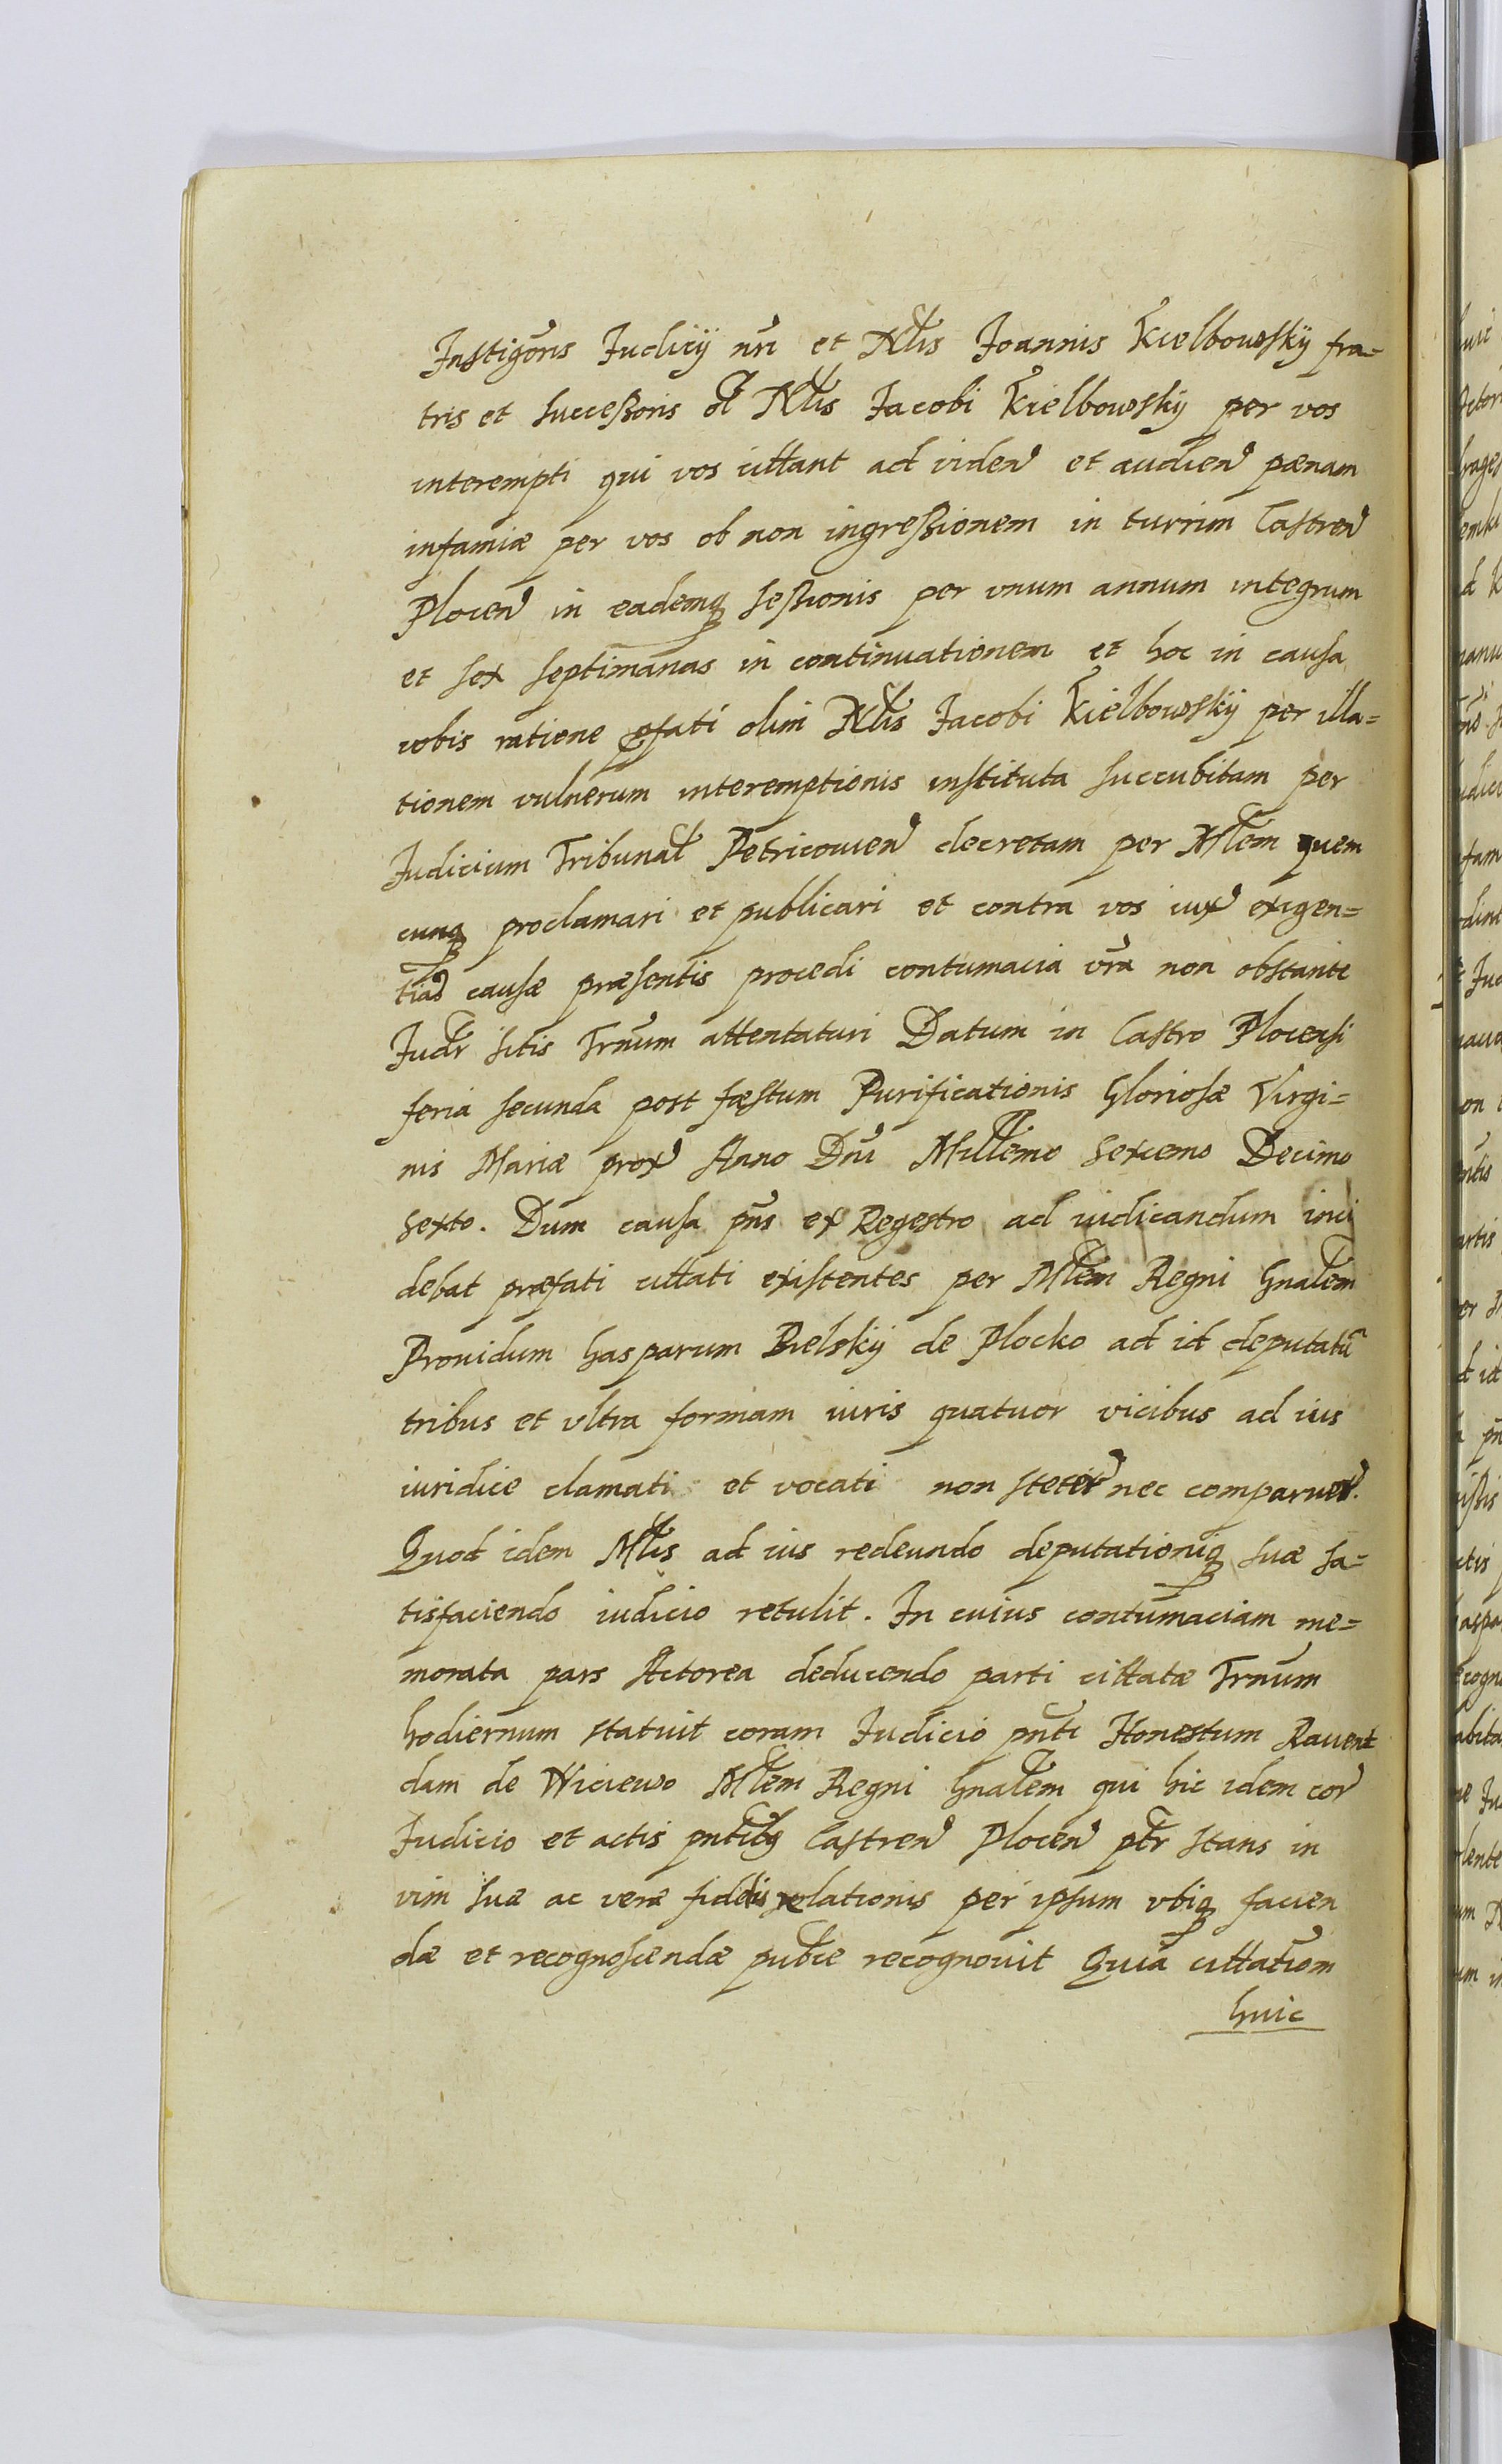 Instigoris Judicij nri et Nlis Joannis Kielbowsky fra=
tris et successoris ol Nlis Jacobi Kielbowsky per vos
interempti qui vos cittant ad viden et audien pænam
infamiæ per vos ob non ingressionem in turrim Castren
Plocen in eademq sessionis per vnum annum integrum
et sex septimanas in continuationem et hoc in causa
vobis ratione pfati olim Nlis Jacobi Kielbowsky per illa=
tionem vulnerum interemptionis instituta succubitam per
Judicium Tribunal Petricouien decretam per Mlem quem
cunq proclamari et publicari et contra vos iux exigen=
tiad causæ præsentis procedi contumacia vra non obstante
Judr sitis Trnum attentaturi Datum in Castro Plocensi
feria secunda post fæstum Purificationis Gloriosæ Virgi=
nis Mariæ prox Anno Dni Millemo sexcemo Decimo
sexto. Dum causa pns ex Regestro ad iudicandum inci
debat præfati cittati existentes per Mlem Regni Gnalem
Prouidum Gasparum Bielsky de Plocko ad id deputatu
tribus et vltra formam iuris quatuor vicibus ad ius
iuridice clamati et vocati non steter nec comparuer.
Quod idem Mlis ad ius redeundo deputationiq suæ sa=
tisfaciendo iudicio retulit. In cuius contumaciam me=
morata pars Actorea deducendo parti cittatæ Trnum
hodiernum statuit coram Judicio pnti Honestum
dam de Wiciewo Mlem Regni Gnalem qui hic idem cor
Judicio et actis pntibq Castren Plocen ptr stans in
vim suæ ac veræ fidelis relationis per ipsum vbiq facien
dæ et recognoscendæ publce recognouit Quia cittatiom
huic